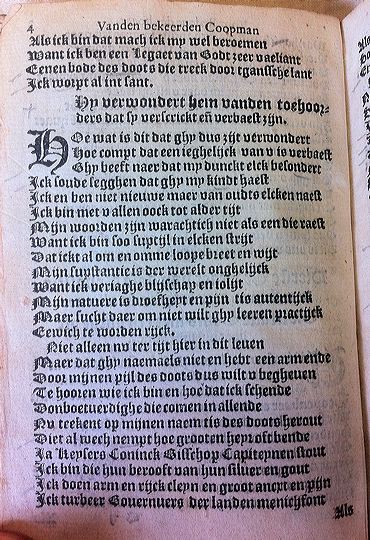 4 Vanden bekeerden Coopman
Als ick bin dat mach ick mp wel beroemen
Want ick ben een Legaet van Godt zeer vaeliant
Eenen bode des doots die treck door tgansschelant
Ick worpt al int sant.
Hy verwondert hem vanden toehoor-
ders dat sp verscrickt eñ verbaest zijn.
HOe wat is dit dat ghy dus zijt verwondert
Hoe compt dat een ieghelijck van v is verbaest
Ghy beeft naer dat mp dunckt elck besondert
Ick soude segghen dat ghy mp kindt haest
Ick en ben niet nieuwe maer van oudts elcken naest
Ick bin met v allen oock tot alder tijt
Mijn woorden zijn warachtich niet als een die raest
Want ick bin soo suptijl in elcken strijt
Dat ickt al om en omme loope breet en wijt
Mijn supstantie is der werelt onghelijck
Want ick veriaghe blijschap en iolijt
Mijn natuere is droefhept en pijn tis autentijck
Maer sucht daer om niet wilt ghy leeren practijck
Eewich te worden rijck.
Niet alleen nv ter tijt hier in dit leuen
Maer dat ghy naemaels niet en hebt een arm ende
Door mijnen pijl des doots dus wilt v begheuen
Te hooren wie ick bin en hoe dat ick schende
Donboetuerdighe die comen in allende
Nv teekent op mijnen naem tis des doots herout
Diet al wech nempt hoe grooten hepr oft bende
Ja Keysers Coninck Bisschop Capiteynen stout
Ick bin die hun berooft van hun siluer en gout
Ick doen arm en rijck cleyn en groot ancxt en pijn
Ick turbeer Gouerneurs der landen menichfout
Als